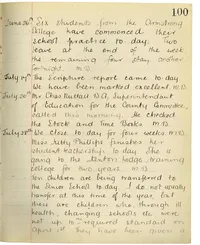 100
June 26th Six students from the Armstrong
College have commenced their
school practice to day. Two
leave at the end of the week
the remaining four stay another
fortnight. M.B.
July 14th The Scripture report came to day.
We have been marked excellent. M.B.
July 20th Mr Chas Nuttall B.A., Superintendent
of Education for the County
called this morning. He checked
the Stock and Time Books. M.B.
July 28th We close to day for four weeks. M.B.
Miss Kitty Phillips finishes her
student teachership to day. She is
going to the Lodge training
college for two years. M.B.
Ten children are being transferred to
the Senior School to day. I do not usually
transfer at this time of the year, but
these are children who through ill
health, changing schools etc, were
not up to required standard on
April 1st. They have been given a